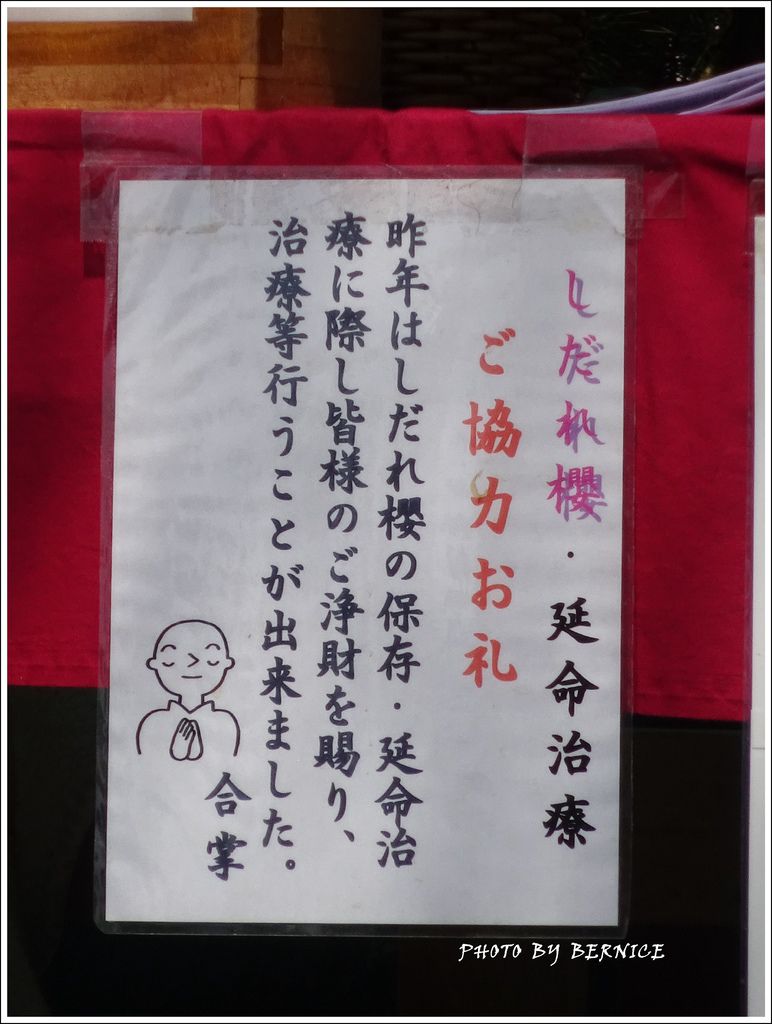 しだれ櫻・延命治療
ご協力お礼
昨年はしだれ櫻の保存・延命治
療に際し皆様のご浄財を賜り、
治療等行うことが出来ました。
合掌
PHOTO BY BERNICE